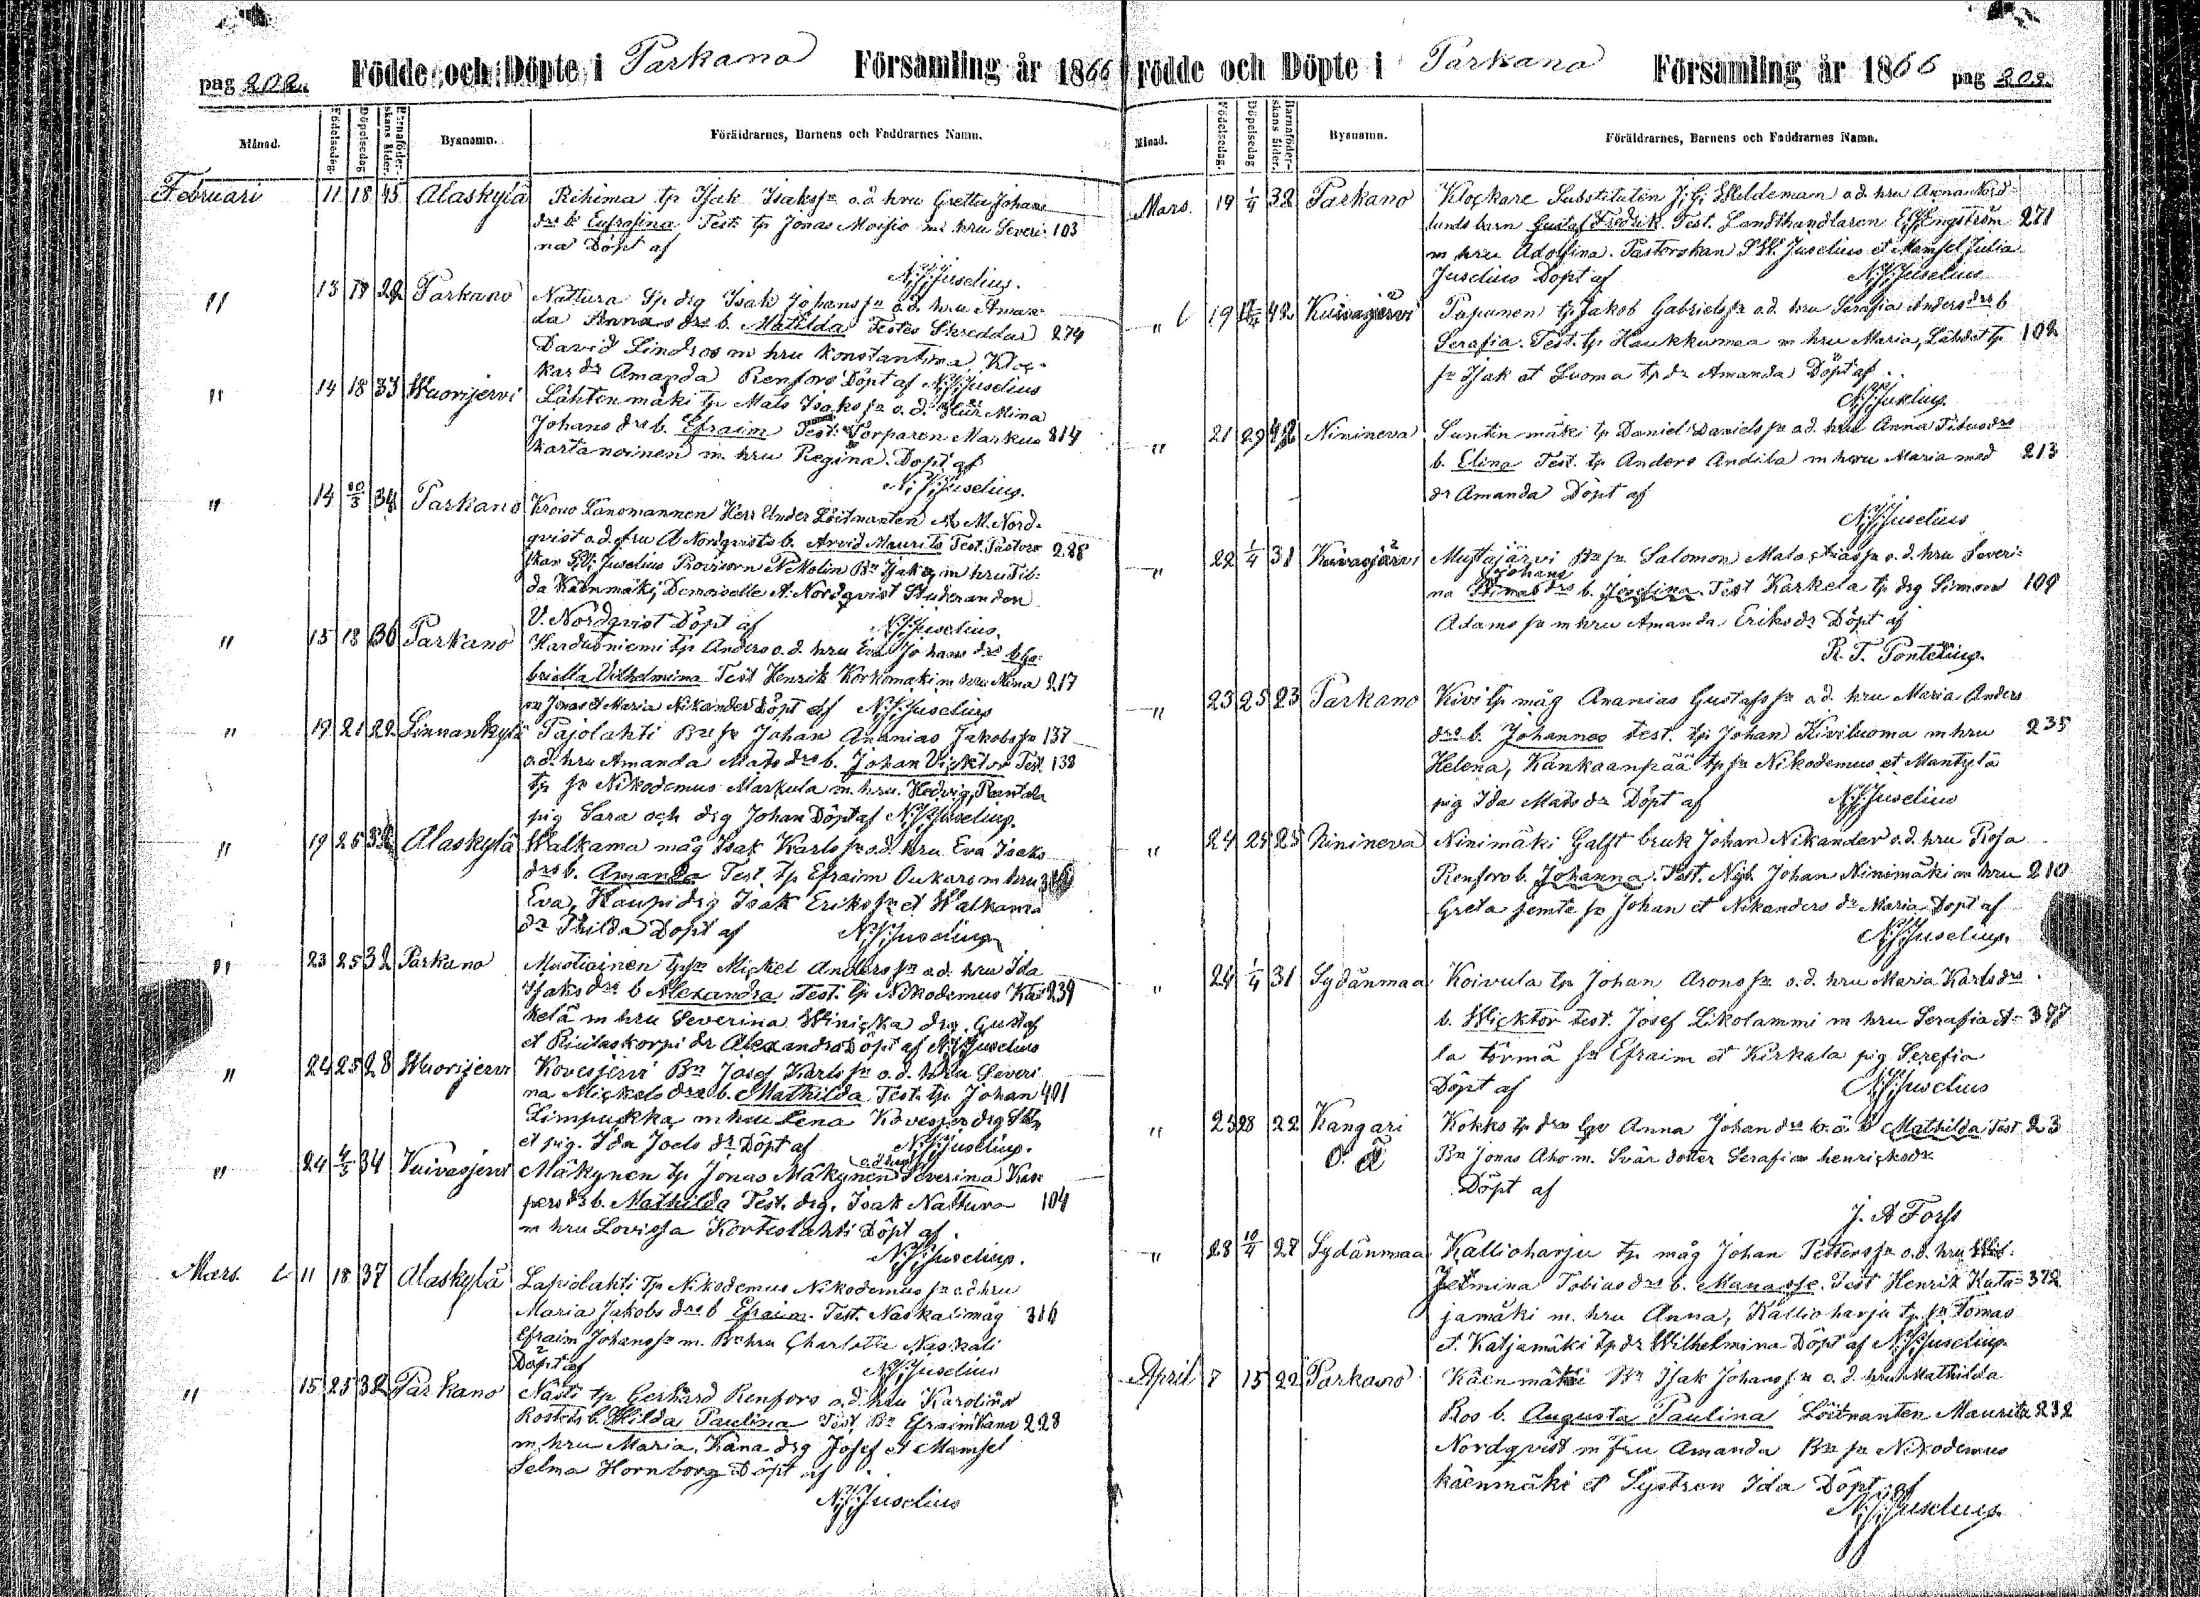 pag 202. Födde och Döpte i Parkano Församling år 1866
Månad. Födelsedag. Döpelsedag. Barnaföderskans ålder. Bynamn. Föräldrarnes, Barnens och Faddrarnes Namn.
Februari 11 18 45 Alaskylä Rihima tp Isak Isaks sn o.d hru Gretta Johans
drs b. Eufrosina Test. tp Jonas Moisio m. hru Severi- 103
na Döpt af
N.J.Juselius.
" 13 18 22 Parkano Nattura tp drg Isak Johans sn o.d. hru Aman-
da Annas drs b. Matilda Testes Skreddar 274
David Lindros m hru Konstantina, Kloc-
kar dr Amanda Renfors Döpt af N.J.Juselius
" 14 18 33 Wuorijervi Lähtenmäki tp Mats Isaks sn o.d. hru Mina
Johans drs b. Efraim Test. Torparen Markus 314
Kartanoinen m. hru Regina. Döpt af
N.J.Juselius.
" 14 10/3 34 Parkano Krono Länsmannen Herr Under Löitnanten M. Nord-
qvist o.d. fru A Nordqvists b. Arvid Maurits Test. Pastors- 288
skan Juselius Provisorn N Molin Bn Isak m hru Til-
da Käenmäki, Demoiselle A. Nordqvist Studeranden
V. Nordqvist Döpt af N.J.Juselius.
" 15 18 36 Parkano Harduniemi tp Anders o.d. hru Eva Johans drs b Ga-
briella Vilhelmina Test Henrik Korkomäki m hru Mina 217
sn Jonas et Maria Nikander Döpt af N.J.Juselius
" 19 21 22 Linnankylä Pajolahti Bn sn Johan Ananias Jakobs sn 137
o.d. hru Amanda Mats drs b. Johan Vicktor Test. 138
tp sn Nikodemus Markula m. hru. Hedvig, Rantala
pig Sara och drg Johan Döpt af N.J.Juselius.
" 19 25 32 Alaskylä Walkama måg Isak Karls sn o.d. hru Eva Isaks
drs b. Amanda Test. tp Efraim Oukari m hru
Eva, Kaupi drg Isak Eriks sn et Walkama
dr Tilda Döpt af N.J.Juselius
" 23 25 32 Parkano Mustiainen tp sn Mickel Anders sn o.d. hru Ida
Isaks drs b Alexandra Test. tp Nikodemus Kas- 239
kelä m hru Severina Winicka drg Gustaf
et Riitaskorpi dr Alexandra Döpt af N.J.Juselius
" 24 25 28 Wuorijervi Kovesjervi Bn Josef Karls sn o.d. hru Severi-
na Mickels drs b. Mathilda Test. tp Johan 401
Limpukka m hru Lena Kovesjer drg
et pig. Ida Joels dr Döpt af N.J.Juselius.
" 24 4/3 34 Kuivasjervi Mäkynen tp Jonas Mäkynen o.d hru Severina Kas-
pers drs b. Mathilda Test. drg. Isak Nattura 104
m hru Lovissa Korteslahti Döpt af.
N.J.Juselius.
Mars. 11 18 37 Alaskylä Lapiolahti tp Nikodemus Nikodemus sn o.d hru
Maria Jakobs drs b Efraim. Test. Naskali måg 316
Efraim Johans sn m. Bn hru Charlotta Naskali
Döpt af N.J.Juselius
" 15 25 32 Parkano Nästi tp Gerhard Renfors o.d. hru Karolina
Rosteds b. Hilda Paulina Test Bn Efraim Kana 228
m hru Maria, Kana drg Josef et Mamsel
Selma Hornborg Döpt af
N.J.Juselius
Födde och Döpte i Parkano Församling år 1866 pag 203.
Månad. Födelsedag. Döpelsedag. Barnaföderskans ålder. Bynamn. Föräldrarnes, Barnens och Faddrarnes Namn.
Mars. 19 1/4 32 Parkano Klockare Substituten J.G. Heldeman o.d. hru Anna Nord-
lunds barn Gustaf Fredrik. Test. Landthandlaren Engström 271
m hru Adolfina. Pastorskan Juselius et Mamsel Julia
Juselius Döpt af N.J.Juselius
" 19 42 Kuivasjärvi Papunen tp Jakob Gabriels sn o.d. hru Serafia Anders drs b
Serafia. Test. tp Haukkumaa m hru Maria, Lähdet tp 102
sn Isak et Luoma tp dr Amanda Döpt af
N.J.Juselius.
" 21 29 42 Ninineva Suntin mäki tp Daniel Daniels sn o.d. hru Anna Titus drs
b. Elina Test. tp Anders Andila m hru Maria med 213
dr Amanda Döpt af
N.J.Juselius
" 22 1/4 31 Kuivasjärvi Mustajärvi Bn sn Salomon Matthias sn o.d. hru Severi-
na Johans drs b. Josefina. Test Karkela tp drg Simon 109
Adams sn m hru Amanda Eriks dr Döpt af
R. T. Pontelius.
" 23 25 23 Parkano Kivi tp måg Ananias Gustafs sn o.d. hru Maria Anders
drs b. Johannes test. tp. Johan Kiviluoma m hru 235
Helena, Kankaanpää tp sn Nikodemus et Mantylä
pig Ida Mats dr Döpt af N.J.Juselius
" 24 25 25 Ninineva Ninimäki Galft bruk Johan Nikander o.d. hru Rosa
Renfors b. Johanna. Test. Nyb Johan Ninimäki m hru 210
Greta jemte sn Johan et Nikanders dr Maria Döpt af
N.J.Juselius.
" 24 1/4 31 Sydänmaa Koivula tp Johan Arons sn o.d. hru Maria Karls drs
b. Wicktor test. Josef Likolammi m hru Serafia A- 377
la törmä sn Efraim et Kirkala pig Serefia
Döpt af N.J.Juselius
" 25 28 22 Kangari Kokks tp drs lge Anna Johans drs o.ä. b Mathilda Test. 23
O. Ä Bn Jonas Aho m. Svär dotter Serafia henricksdr
Döpt af
J. A Forss
" 28 10/4 27 Sydänmaa Kallioharju tp måg Johan Petters sn o.d. hru Wil-
helmina Tobias drs b. Manasse. Test Henrik Kata- 372
jamäki m. hru Anna, Kallioharju tp. sn Tomas
et. Katjamäki tp dr Wilhelmina Döpt af N.J.Juselius.
April 7 15 22 Parkano Käenmäki Bn Isak Johans sn o.d. hru Mathilda
Ros b. Augusta Paulina Löitnanten Maurits 232
Nordqvist m fru Amanda Bn sn Nikodemus
Käenmäki et Systron Ida Döpt af
N.J.Juselius.